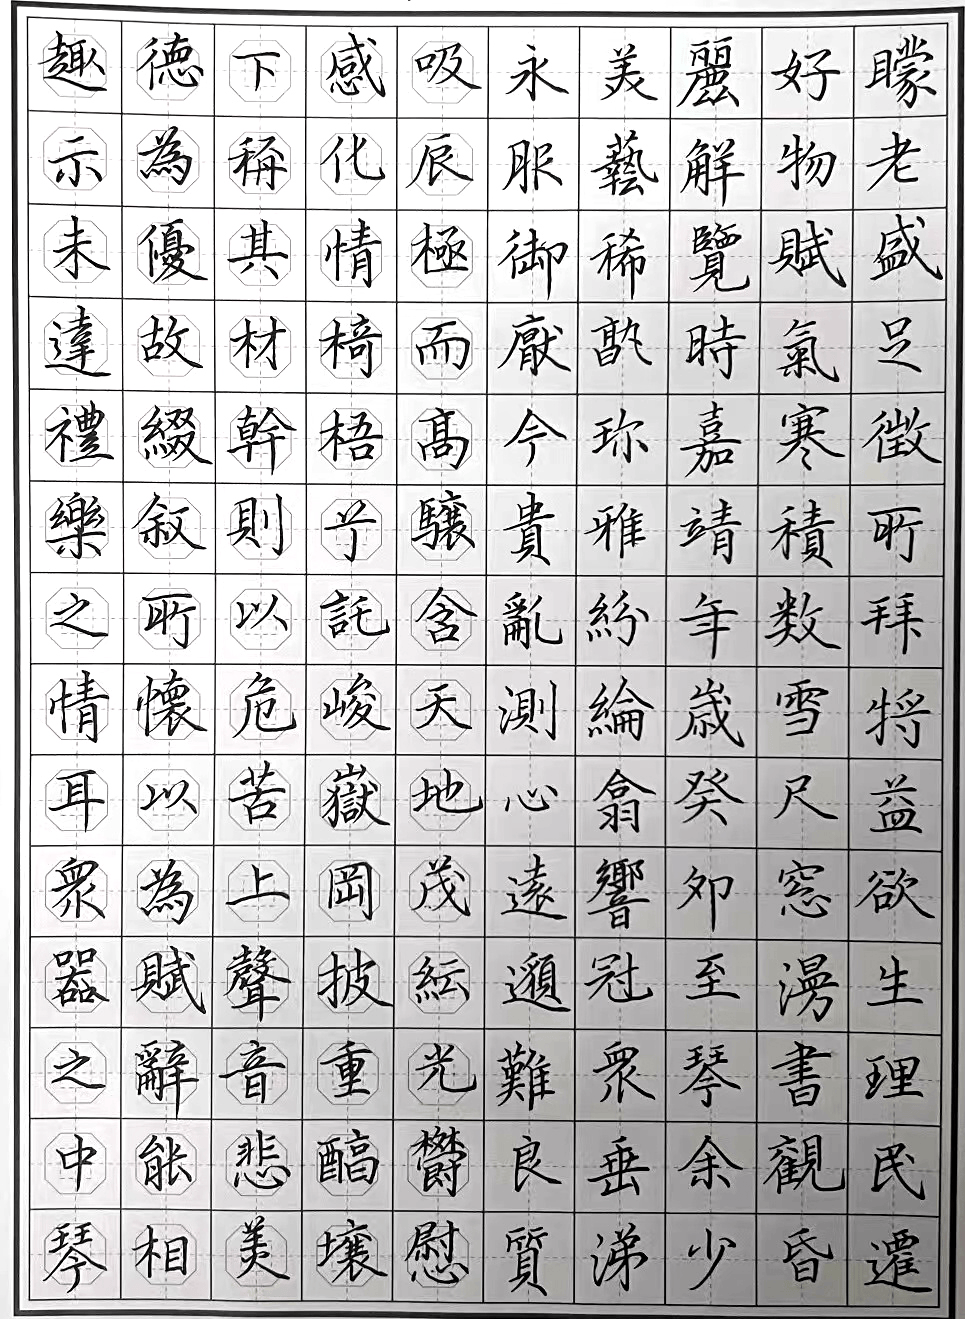 趣示未達禮樂之情耳衆器之中琴
德為優故綴叙所懷以為賦辭能相
下稱其材幹則以危苦上聲音悲美
感化情椅梧兮託峻嶽岡披重醕壤
吸辰極而高驤含天地茂紜光鬱慰
永服御厭今貴亂測心遠邈難良質
美藝稀孰珎雅紛綸翕響冠衆垂涕
麗解覽時嘉靖年歲癸夘至琴余少
好物賦氣寒積数雪尺窓漫書觀昏
矇老盛足徵所拜将益欲生理民遷